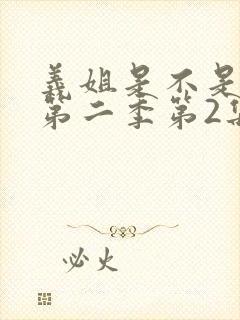 義姐是不是
第二季第2集
必火